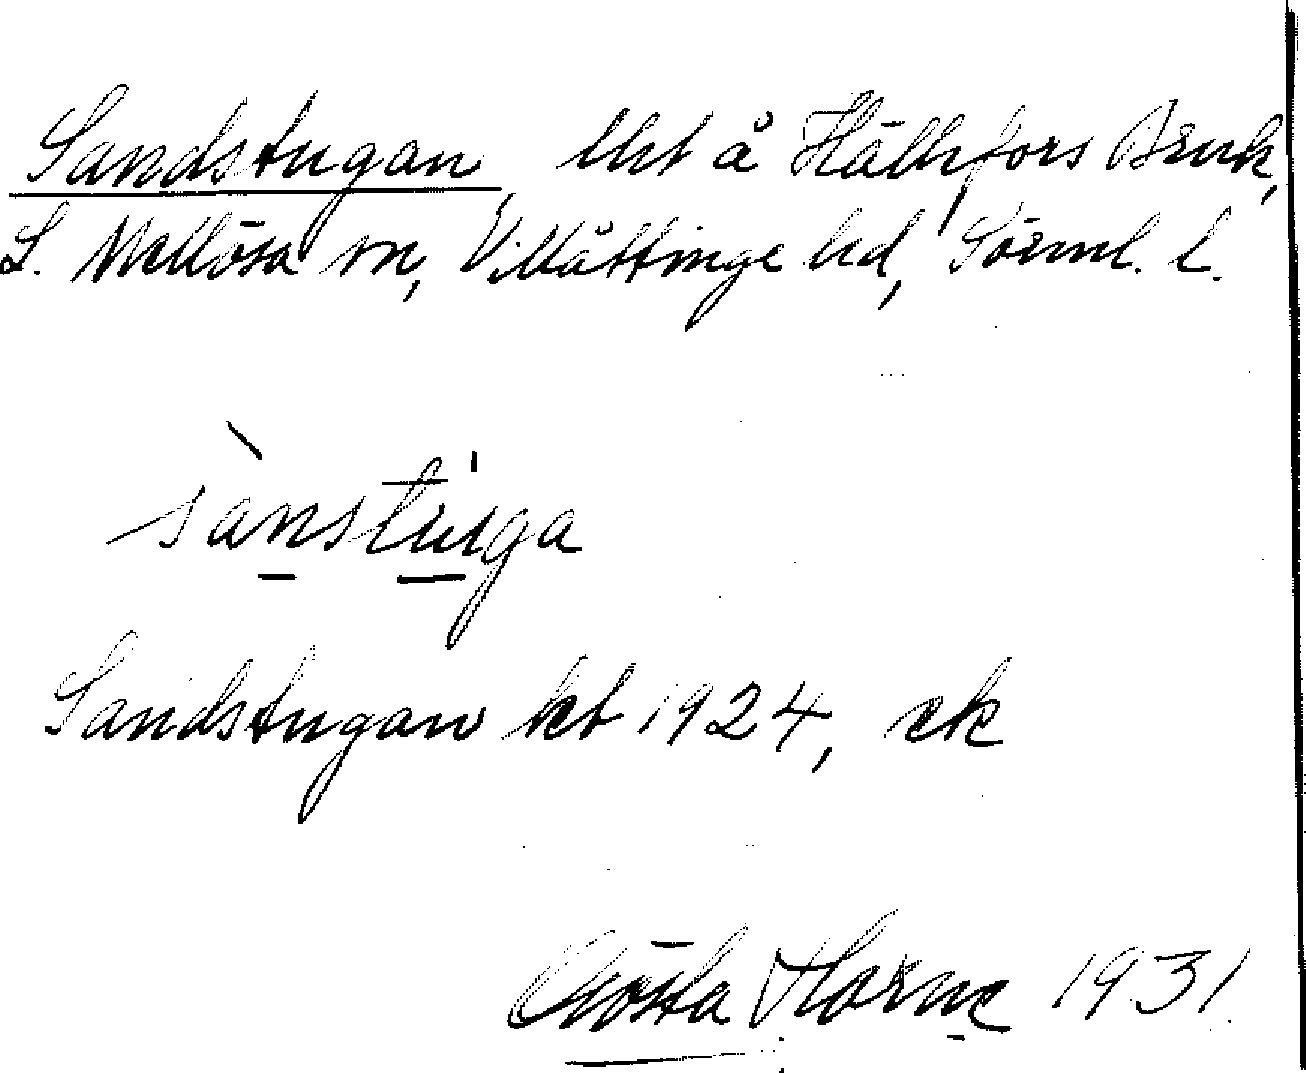 Sandstugan, lht å Hällefors Bruk,
L. Mellösa sn, Villåttinge hd, Sörml. l.
sànstuga
Sandstugan kt 1924, ek
Gösta Horne 1931